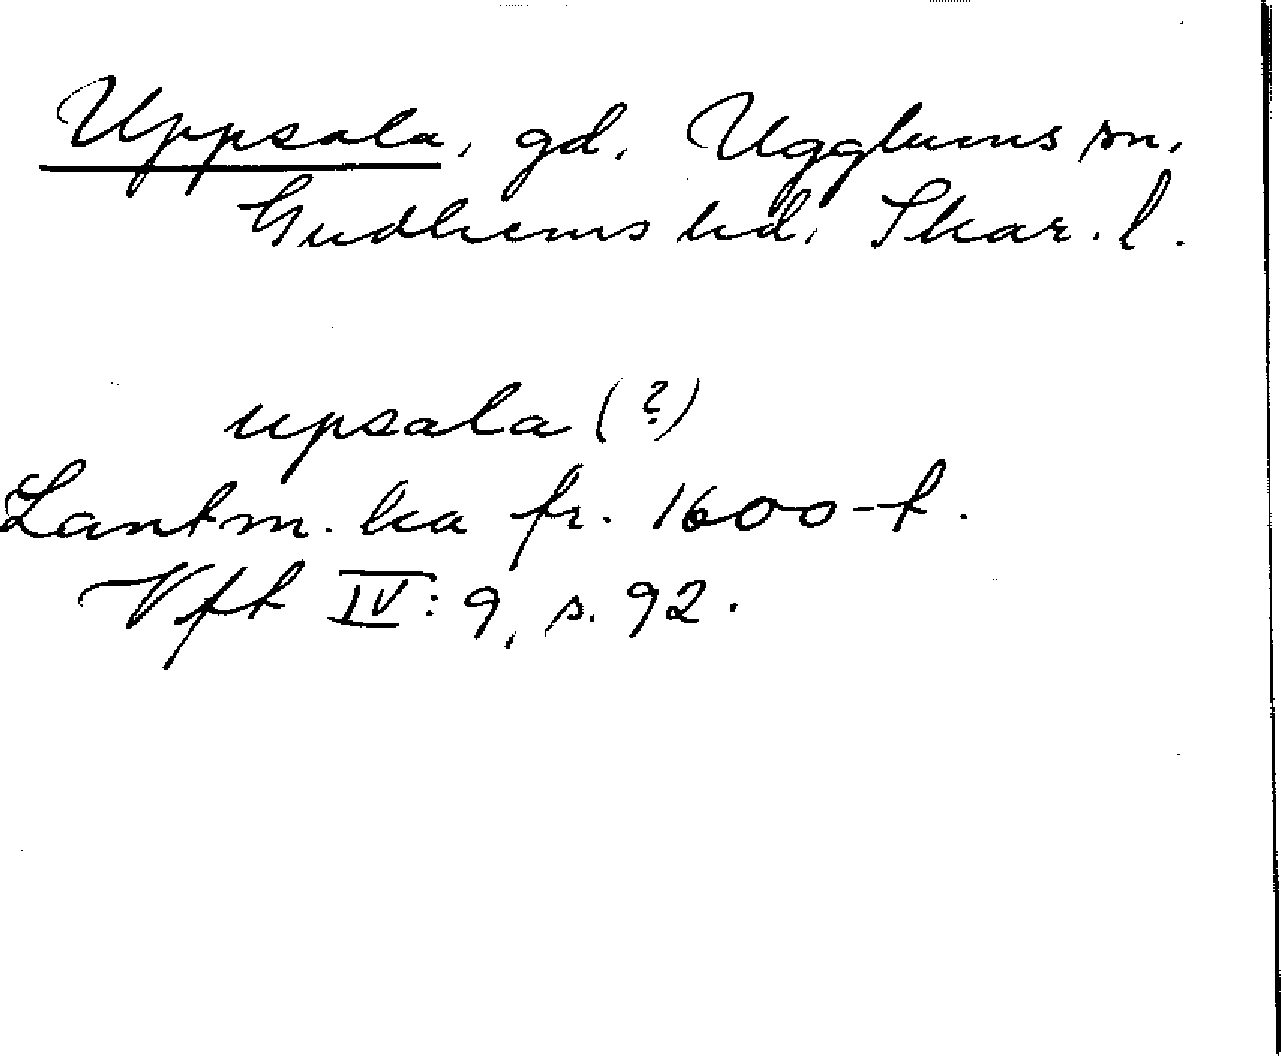 Uppsala, gd. Ugglums sn.
Gudhems hd. Skar. l.
upsala (?)
Lantm. ka fr. 1600-t.
Vft IV: 9, s. 92.